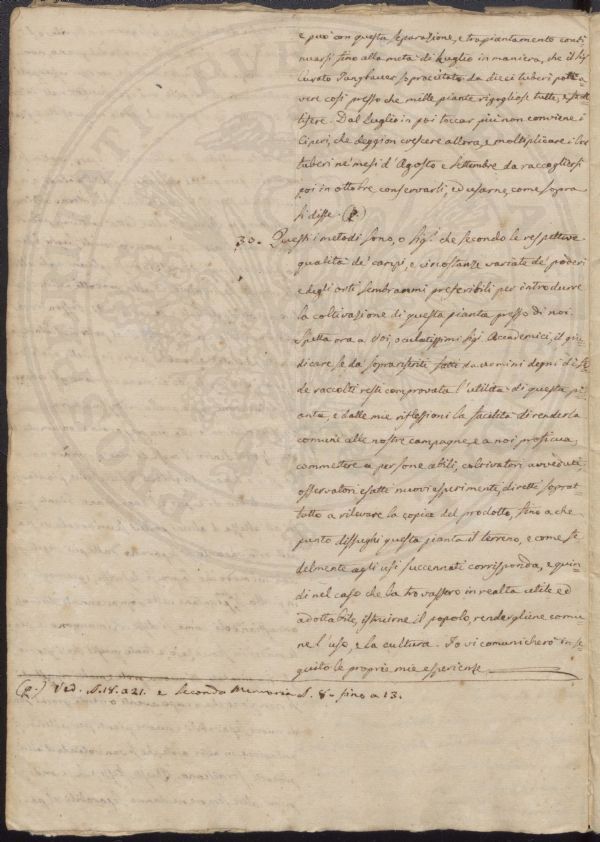 e può con questa separazione, e trapiantamento conti=
nuarsi fino alla metà di Luglio in maniera, che il Sig.
Curato Pangbauer sopracitato da dieci tuberi potè a=
vere così presso che mille piante rigogliose tutte, e frut
tifere. Dal Luglio in poi toccar più non conviene i
Ciperi, che deggion crescere allora, e moltiplicare i lor
tuberi ne' mesi d'Agosto e Settembre da raccogliersi
poi in ottobre conservarli, ed usarne, come sopra
si disse. (p.)
30. Questi i metodi sono, o Sigri. che secondo le respettive
qualità de' campi, e circostanze variate de' poderi
e degli orti sembranmi preferibili per introdurre
la coltivazione di questa pianta presso di noi.
Spetta ora a Voi, oculatissimi Sigri. Accademici, il giu=
dicare, se da' soprariferiti fatti da uomini degni di fe=
de raccolti resti comprovata l'utilità di questa pi=
anta, e dalle mie riflessioni la facilità di renderla
comune alle nostre campagne, e a noi proficua,
commettere a persone abili, coltivatori avveduti,
osservatori esatti nuovi esperimenti, diretti soprat=
tutto a rilevare la copia del prodotto, fino a che
punto dissughi questa pianta il terreno, e come fe=
delmente agli usi succennati corrisponda, e quin=
di nel caso che la trovassero in realtà utile ed
adottabile, istruirne il popolo, rendergliene comu=
ne l'uso, e la cultura. Io vi comunicherò in se=
guito le proprie mie esperienze
(p.) Ved. §. 18. a 21. e Seconda Memoria §. 8. fino a 13.